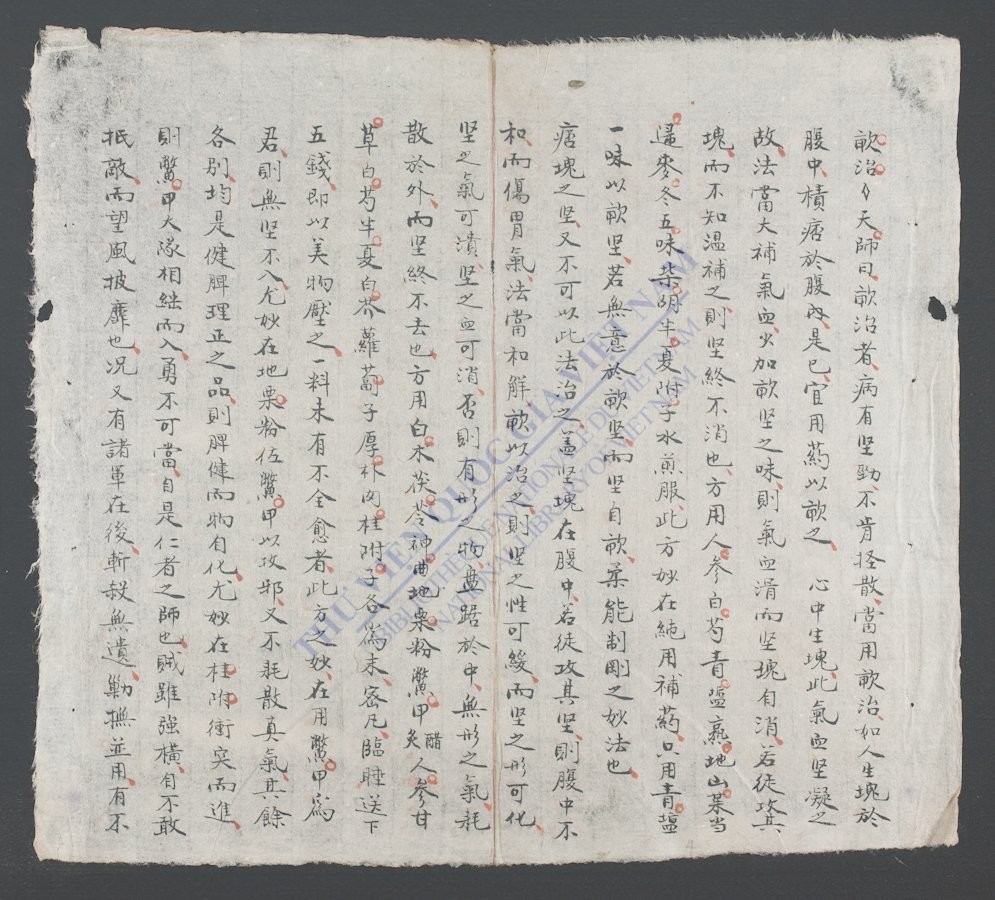 軟治〻天師曰軟治者病有坚勁不肯揑散當用軟治如人生塊於
腹中積痞於腹内是已宜用葯以軟之 心中生塊此氣血坚凝之
故法當大補氣血少加軟坚之味則氣血滑而坚塊自消若徒攻其
塊而不知温補之則坚終不消也方用人參白芍青塩熟地山萸当
歸麥冬五味柴胡半夏附子水煎服此方妙在純用補葯只用青塩
一味以軟坚若無意於軟坚而坚自軟柔能制剛之妙法也
痞塊之坚又不可以此法治之盖坚塊在腹中若徒攻其坚則腹中不
和而傷胃氣法當和觧軟以治之則坚之性可緩而坚之形可化
坚之氣可潰坚之血可消否則有形之物盘踞於中無形之氣耗
散於外而坚終不去也方用白术茯苓神曲地栗粉鱉甲醋炙人參甘
草白芍半夏白芥蘿蔔子厚朴肉桂附子各爲末密凡臨睡送下
五錢即以美物壓之一料未有不全愈者此方之妙在用鱉甲爲
君則無坚不入尤妙在地栗粉佐鱉甲以攻邪又不耗散真氣其餘
各别均是健脾理正之品則脾健而物自化尤妙在桂附衝突而進
則鱉甲大隊相継而入勇不可當自是仁者之師也賊雖強横自不敢
抵敵而望風披靡也况又有諸軍在後斬殺無遺勦撫並用有不
THƯ VIỆN QUỐC GIA VIỆT NAM
BIBLIOTHEQUE NATIONALE DU VIETNAM
NATIONAL LIBRARY OF VIETNAM